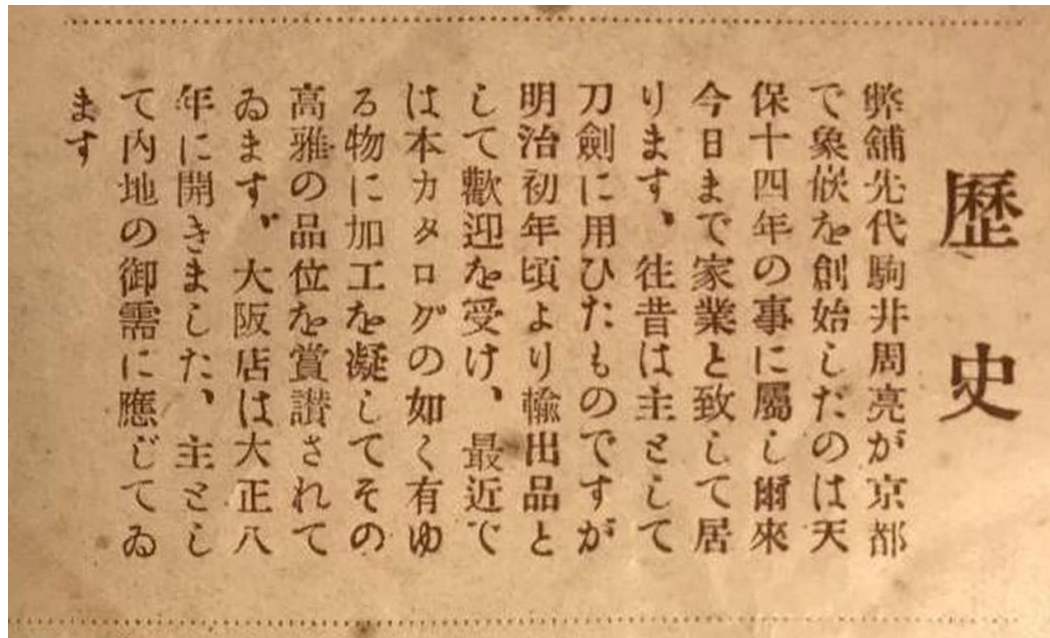 歷史
弊舖先代駒井周亮が京都
で象嵌を創始したのは天
保十四年の事に屬し爾來
今日まで家業と致して居
ります、往昔は主として
刀劍に用ひたものですが
明治初年頃より輸出品と
して歡迎を受け、最近で
は本カタログの如く有ゆ
る物に加工を凝してその
高雅の品位を賞讃されて
ゐます。大阪店は大正八
年に開きました、主とし
て内地の御需に應じてゐ
ます